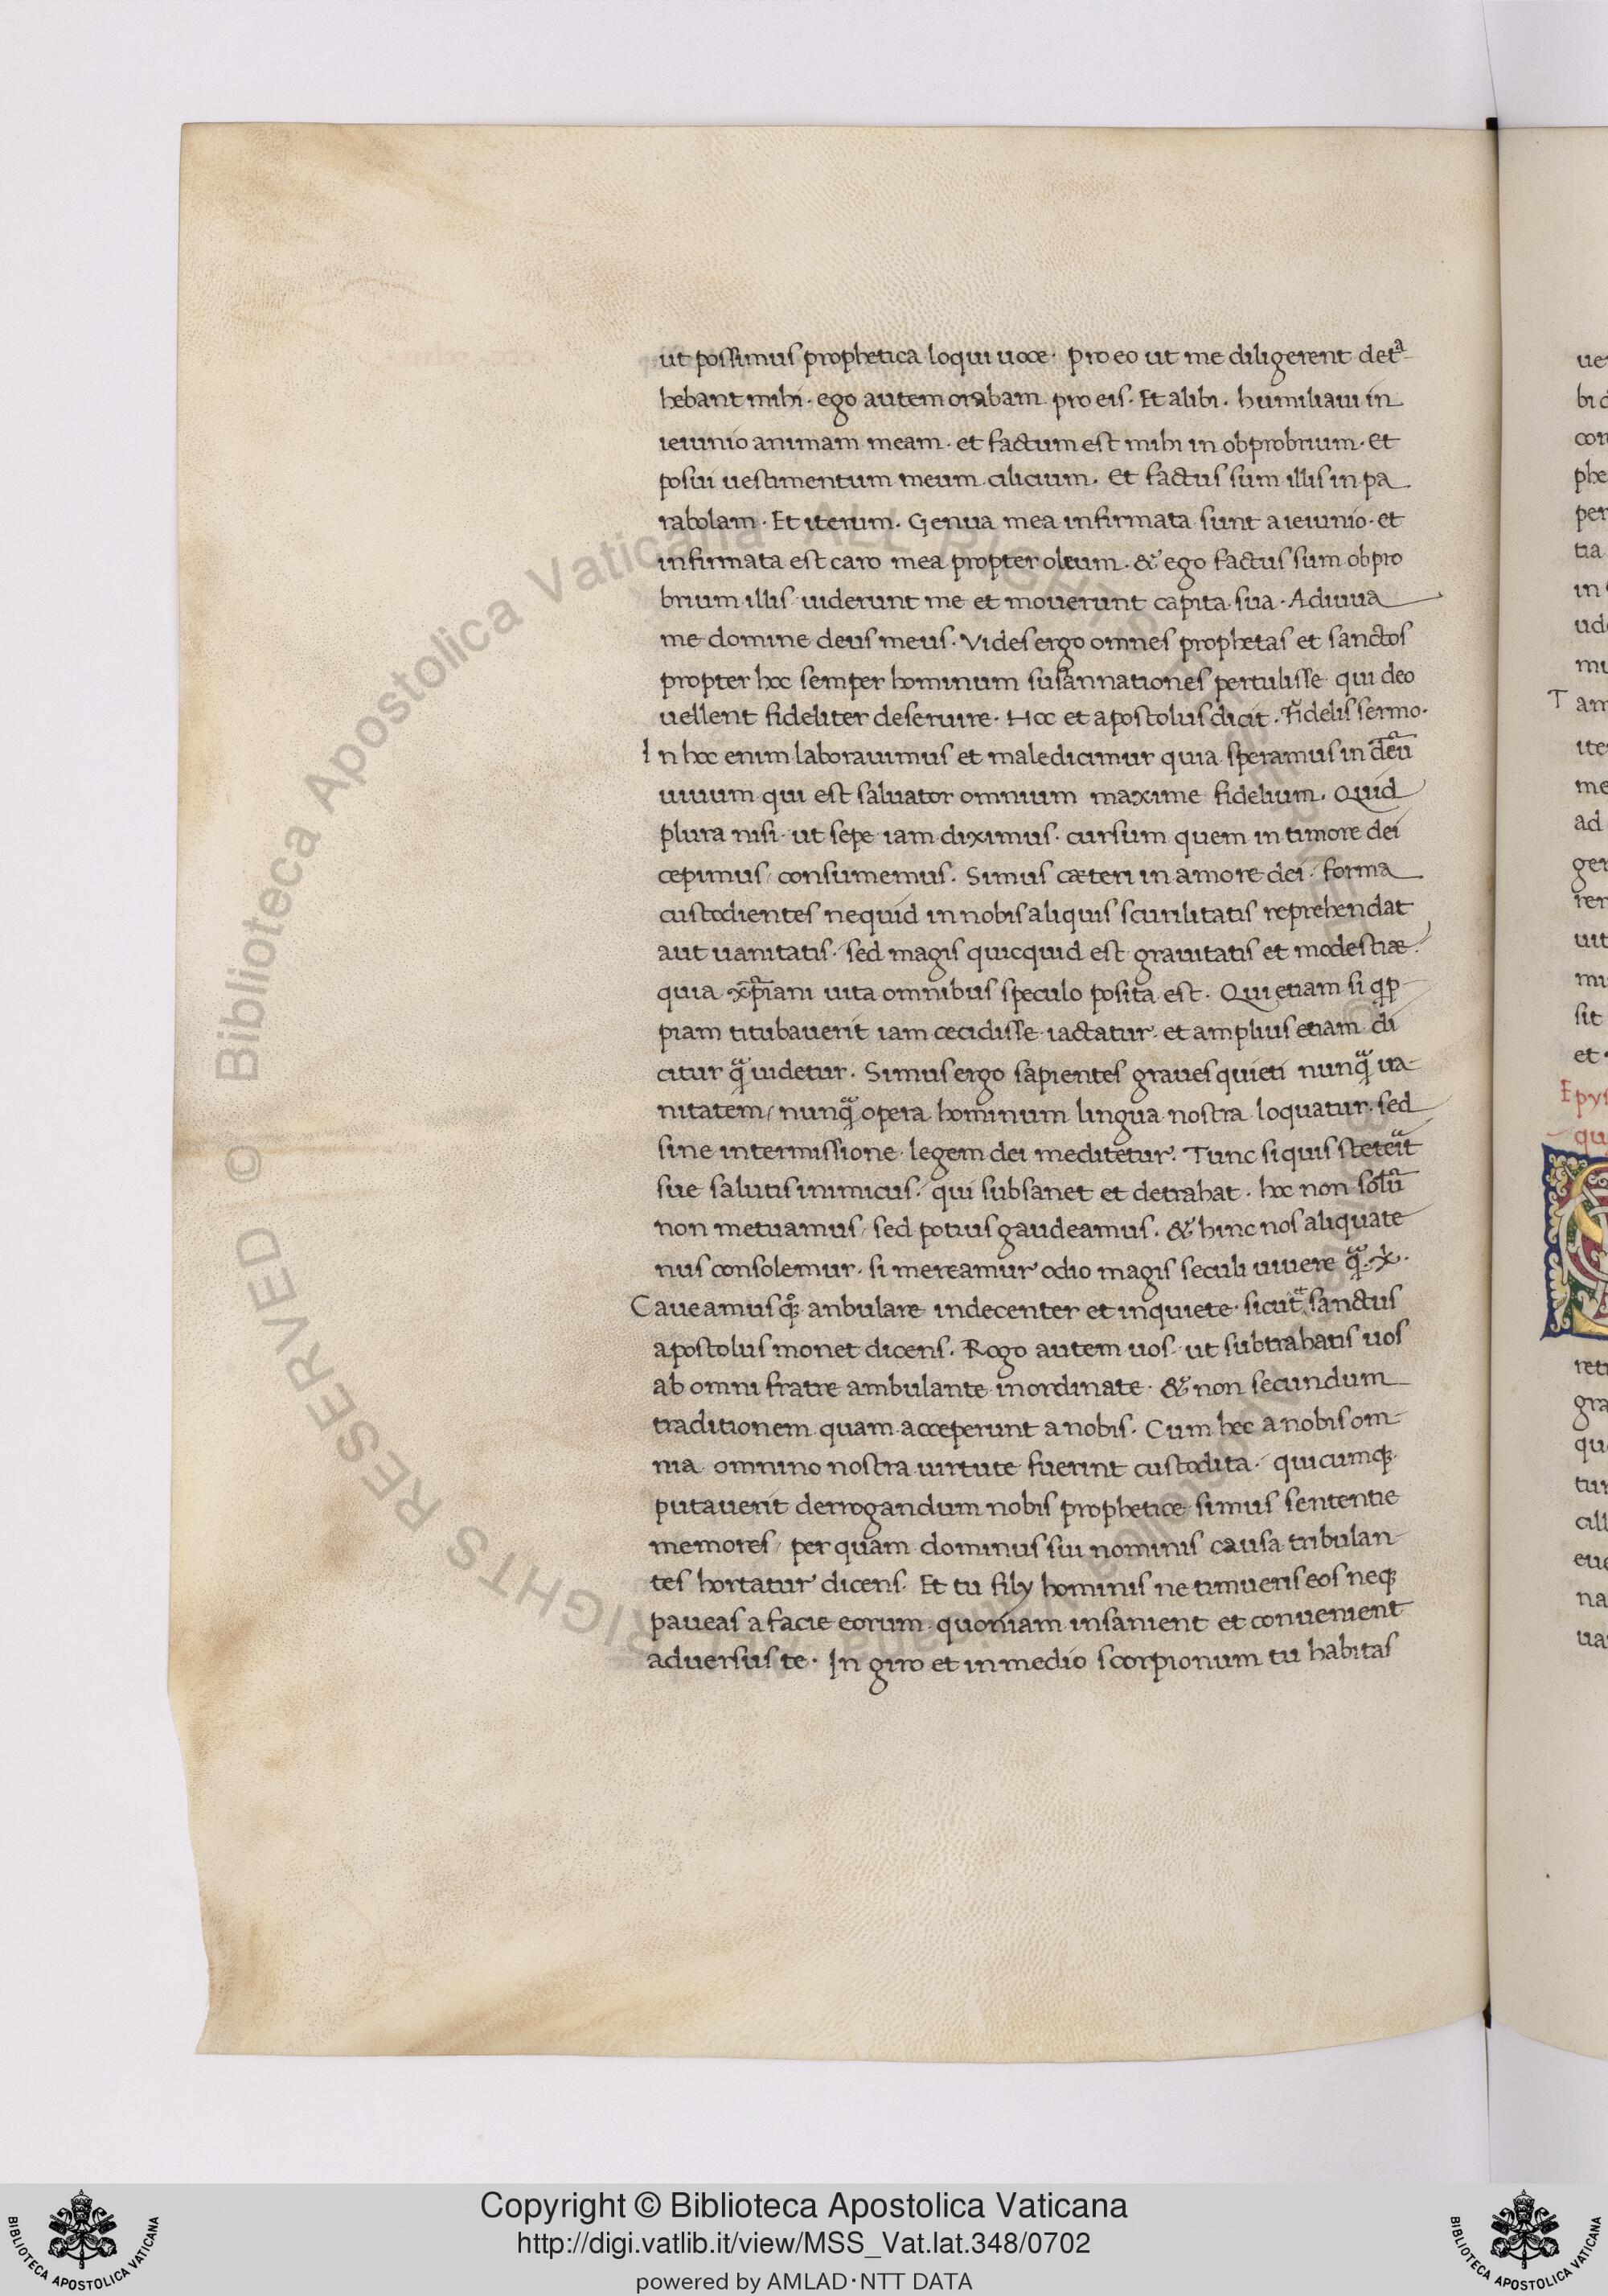 ut possimus prophetica loqui uoce. pro eo ut me diligerent detᵃ
hebant mihi. ego autem orabam pro eis. Et alibi. humiliaui in
ieiunio animam meam. et factum est mihi in obprobrium. et
posui uestimentum meum cilicium. Et factus sum illis in pa
rabolam. Et iterum. Genua mea infirmata sunt a ieiunio. et
infirmata est caro mea propter oleum. & ego factus sum obpro
brium illis uiderunt me et mouerunt capita sua. Adiuua
me domine deus meus. Vides ergo omnes prophetas et sanctos
propter hoc semper hominum susannationes pertulisse qui deo
uellent fideliter deseruire. Hoc et apostolus dicit. Fidelis sermo.
In hoc enim laborauimus et maledicimur quia speramus in deū
uiuum qui est saluator omnium maxime fidelium. Quid
plura nisi ut sepe iam diximus. cursum quem in timore dei
cepimus/ consumemus. Simus cæteri in amore dei. forma
custodientes nequid in nobis aliquis scurilitatis reprehendat
aut uanitatis. sed magis quicquid est grauitatis et modestiæ.
quia xp̄iani uita omnibus speculo posita est. Qui etiam si qp̱
piam titubauerit iam cecidisse iactatur. et amplius etiam di
citur q̄ uidetur. Simus ergo sapientes graues quieti nunq̄ ua-
nitatem/ nunq̄ opera hominum lingua nostra loquatur. sed
sine intermissione legem dei meditetur. Tunc si quis steteīt
sue salutis inimicus. qui subsanet et detrahat. hoc non solū
non metuamus/ sed potius gaudeamus. & hinc nos aliquate
nus consolemur. si mereamur odio magis seculi uiuere q̄. x̄.
Caueamus q̨ᵒ anbulare indecenter et inquiete. sicut &#x1D49; sanctus
apostolus monet dicens. Rogo autem uos ut subtrahatis uos
ab omni fratre ambulante inordinate. & non secundum
traditionem quam acceperunt a nobis. Cum hec a nobis om-
nia omnino nostra uirtute fuerint custodita. quicumq;
putauerit derrogandum nobis prophetice simus sententie
memores/ per quam dominus sui nominis causa tribulan-
tes hortatur dicens. Et tu fily hominis ne timueris eos neq;
paueas a facie eorum quoniam insanient et conuenient
aduersus te. In giro et in medio scorpionum tu habitas
Biblioteca Apostolica Vaticana ALL RIGHTS RESERVED ©
Copyright © Biblioteca Apostolica Vaticana
http://digi.vatlib.it/view/MSS_Vat.lat.348/0702
powered by AMLAD·NTT DATA
BIBLIOTECA APOSTOLICA VATICANA
BIBLIOTECA APOSTOLICA VATICANA